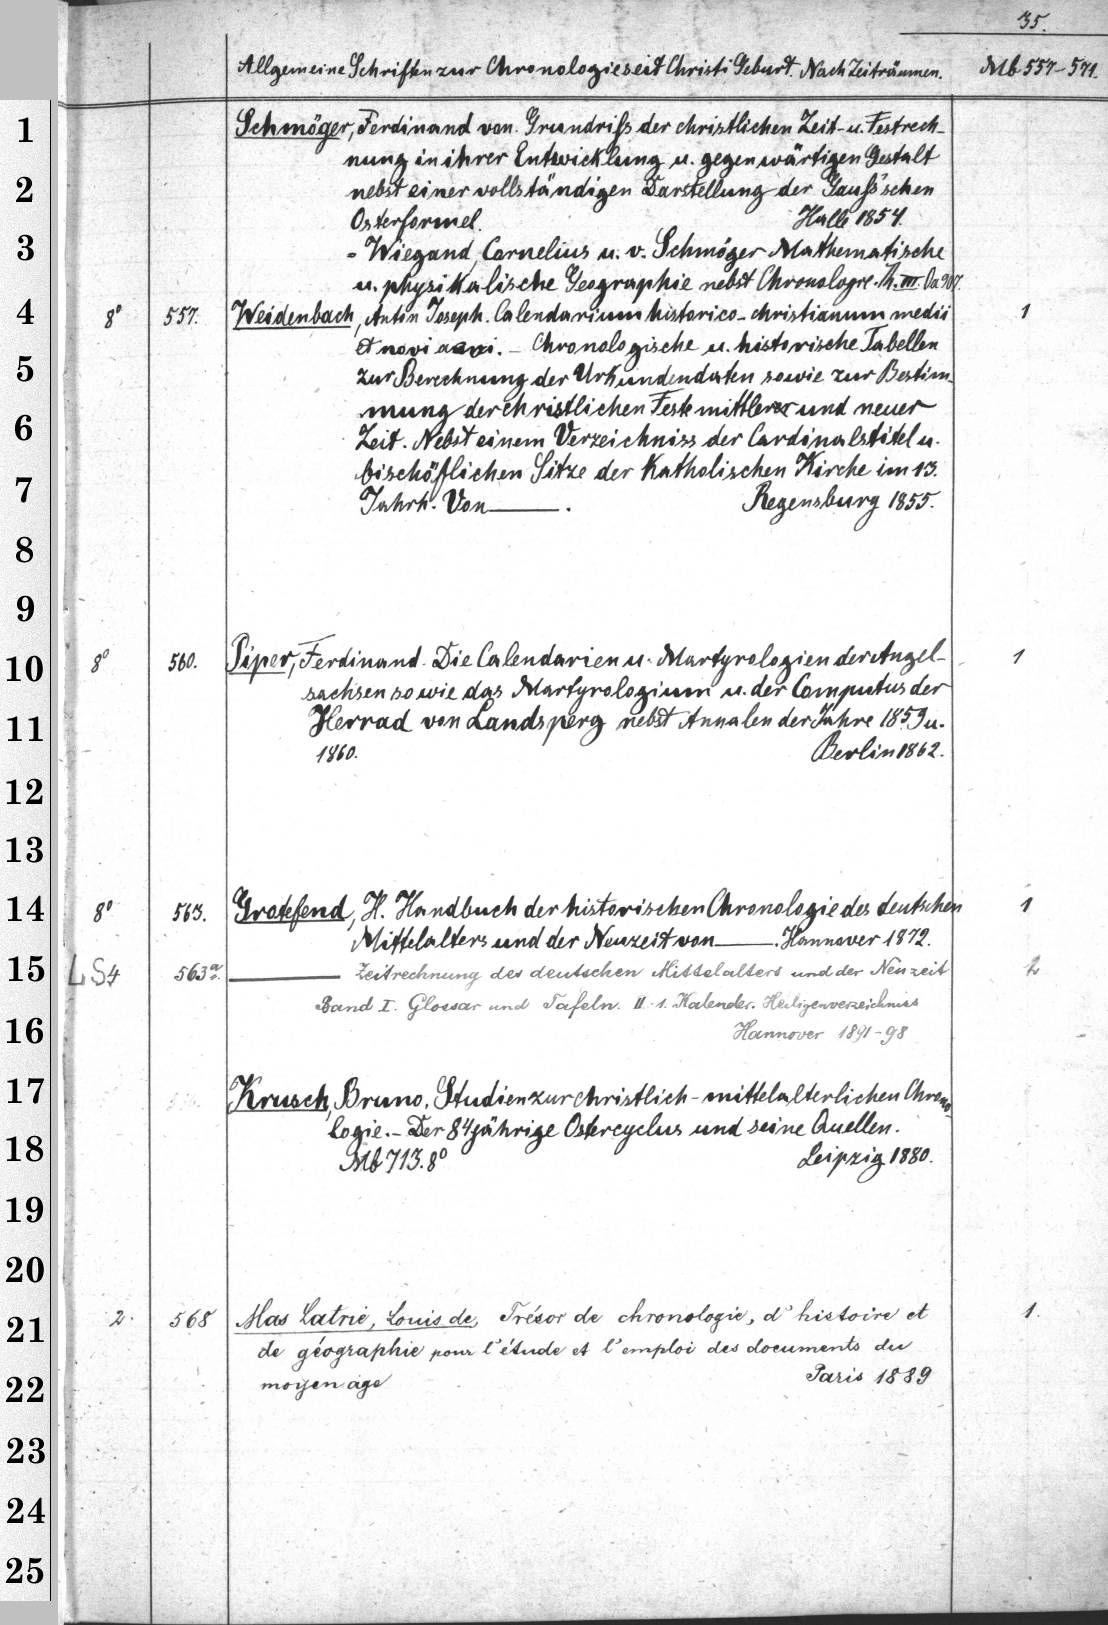 35.
Allgemeine Schriften zur Chronologie seit Christi Geburt. Nach Zeiträumen. Mb 557-571.
1 Schmöger, Ferdinand von. Grundriſs der christlichen Zeit- u. Festrech-
nung in ihrer Entwicklung u. gegenwärtigen Gestalt
2 nebst einer vollständigen Darstellung der Gauſs'schen
Osterformel. Halle 1854.
3 = Wiegand, Cornelius u. v. Schmöger Mathematische
u. physikalische Geographie nebst Chronologie. Th. III. Oa 907.
4 8° 557. Weidenbach, Anton Joseph. Calendarium historico-christianum medii 1
et novi aevi. - Chronologische u. historische Tabellen
5 zur Berechnung der Urkundendaten sowie zur Bestim-
mung der christlichen Feste mittlerer und neuer
6 Zeit. Nebst einem Verzeichniss der Cardinalstitel u.
bischöflichen Sitze der Katholischen Kirche im 13.
7 Jahrh. Von ——. Regensburg 1855.
8
9
10 8° 560. Piper, Ferdinand. Die Calendarien u. Martyrologien der Angel- 1
sachsen sowie das Martyrologium u. der Computus der
11 Herrad von Landsperg nebst Annalen der Jahre 1859 u.
1860. Berlin 1862.
12
13
14 8° 563. Grotefend, H. Handbuch der historischen Chronologie des deutschen 1
Mittelalters und der Neuzeit von ——. Hannover 1872.
15 LS4 563a. —— Zeitrechnung des deutschen Mittelalters und der Neuzeit 2
Band I. Glossar und Tafeln. II. 1. Kalender. Heiligenverzeichniss
16 Hannover 1891-98
17 Krusch, Bruno. Studien zur christlich-mittelalterlichen Chrono-
logie. - Der 84jährige Ostercyclus und seine Quellen.
18 Mb 713. 8° Leipzig 1880.
19
20
21 2. 568 Mas Latrie, Louis de, Trésor de chronologie, d'histoire et 1.
de géographie pour l'étude et l'emploi des documents du
22 moyen age Paris 1889
23
24
25